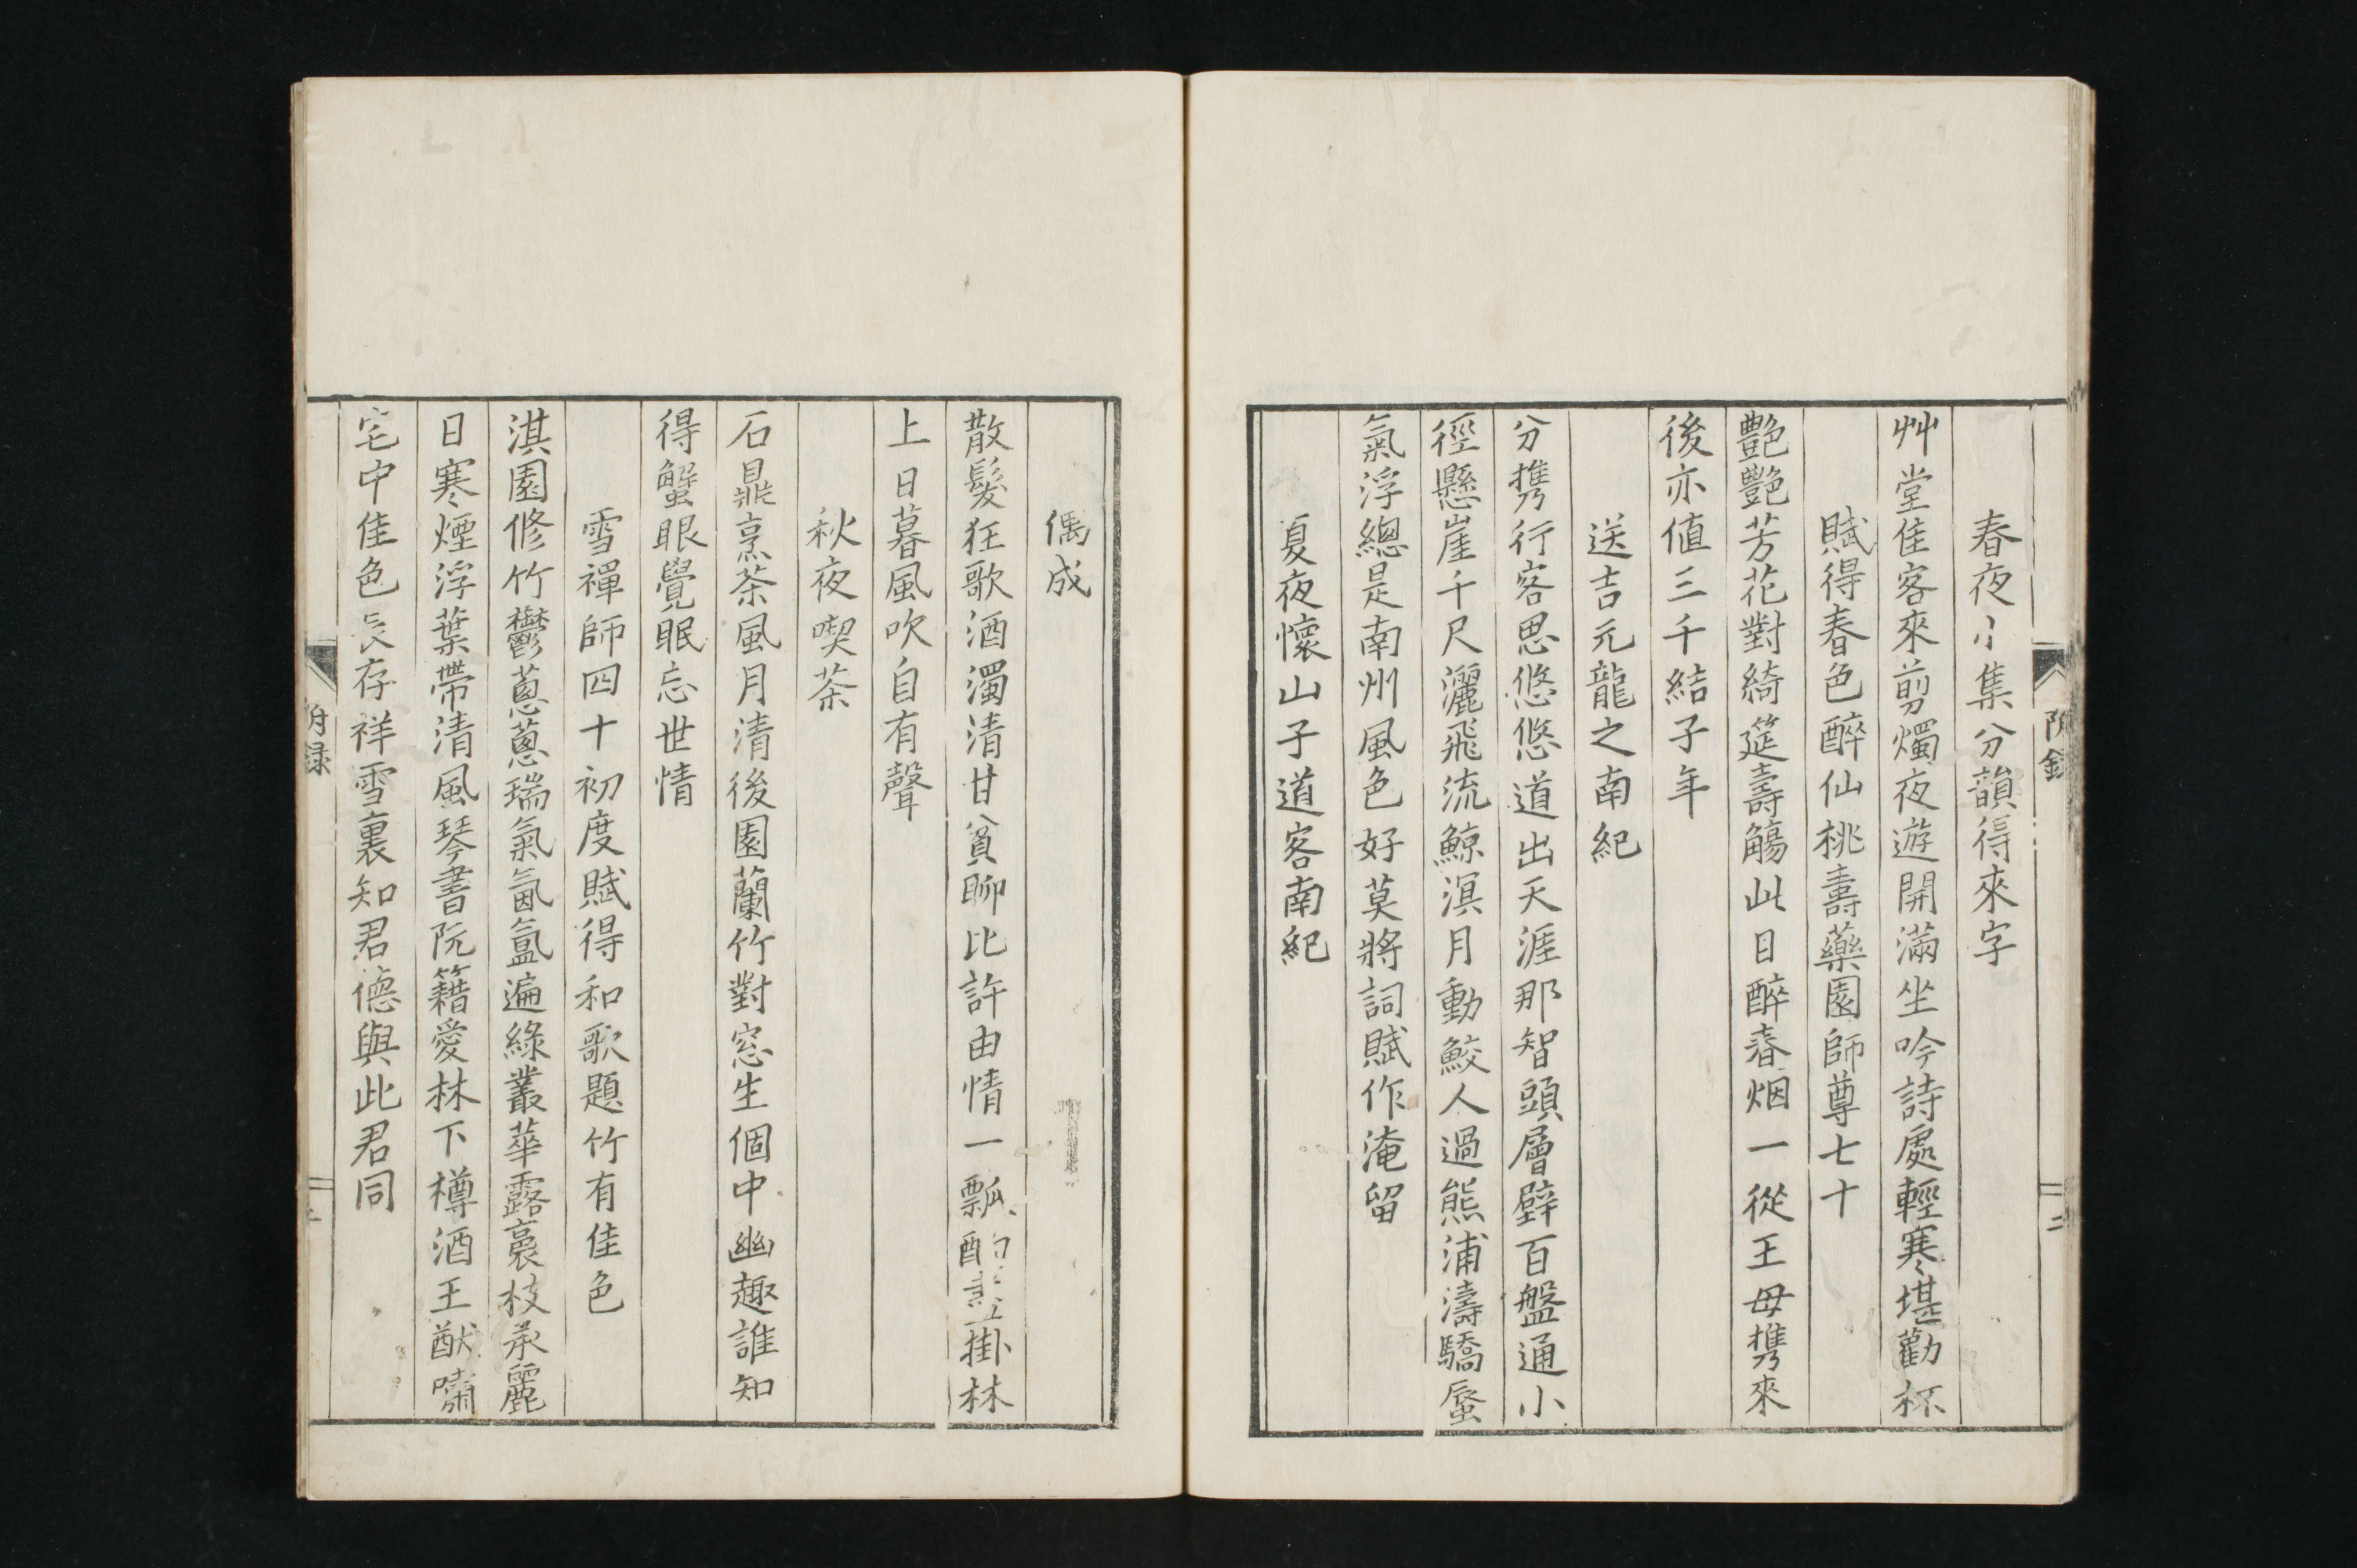 附錄
二
春夜小集分韻得來字
艸堂佳客來剪燭夜遊開滿坐吟詩處輕寒堪勸杯
賦得春色醉仙桃壽藥園師尊七十
艷艷芳花對綺筵壽觴此日醉春烟一從王母携來
後亦値三千結子年
送吉元龍之南紀
分携行客思悠悠道出天涯那智頭層壁百盤通小
徑懸崖千尺灑飛流鯨溟月動鮫人過熊浦濤驕蜃
氣浮總是南州風色好莫將詞賦作淹留
夏夜懷山子道客南紀
偶成
散髮狂歌酒濁清甘貧聊比許由情一瓢酌盡掛林
上日暮風吹自有聲
秋夜喫茶
石鼎烹茶風月清後園蘭竹對窓生個中幽趣誰知
得蟹眼覺眠忘世情
雪禪師四十初度賦得和歌題竹有佳色
淇園修竹鬱蔥蔥瑞氣氤氳遍綠叢華露裛枝承麗
日寒煙浮葉帶清風琴書阮籍愛林下樽酒王猷嘯
宅中佳色長存祥雪裏知君德與此君同
附錄